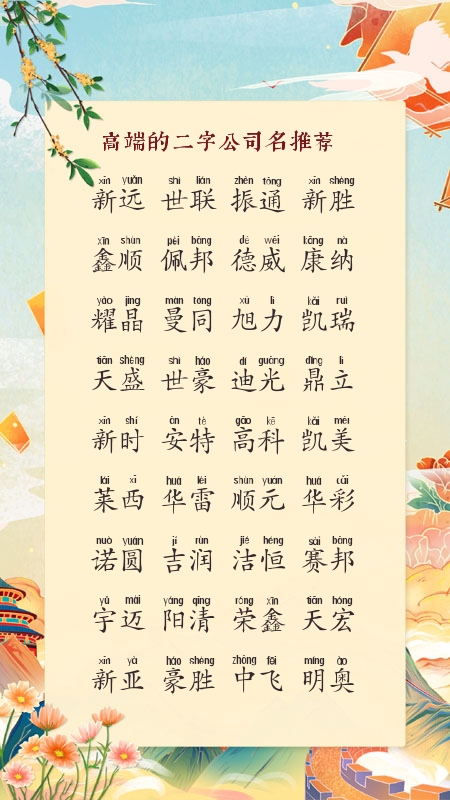 高端的二字公司名推荐
xīn yuǎn shì lián zhèn tōng xīn shèng
新远 世联 振通 新胜
xīn shùn pèi bāng dé wēi kāng nà
鑫顺 佩邦 德威 康纳
yào jīng màn tóng xù lì kǎi ruì
耀晶 曼同 旭力 凯瑞
tiān shèng shì háo dí guāng dǐng lì
天盛 世豪 迪光 鼎立
xīn shí ān tè gāo kē kǎi měi
新时 安特 高科 凯美
lái xī huá léi shùn yuán huá cǎi
莱西 华雷 顺元 华彩
nuò yuán jí rùn jié héng sài bāng
诺圆 吉润 洁恒 赛邦
yǔ mài yáng qīng róng xīn tiān hóng
宇迈 阳清 荣鑫 天宏
xīn yà háo shèng zhōng fēi míng ào
新亚 豪胜 中飞 明奥